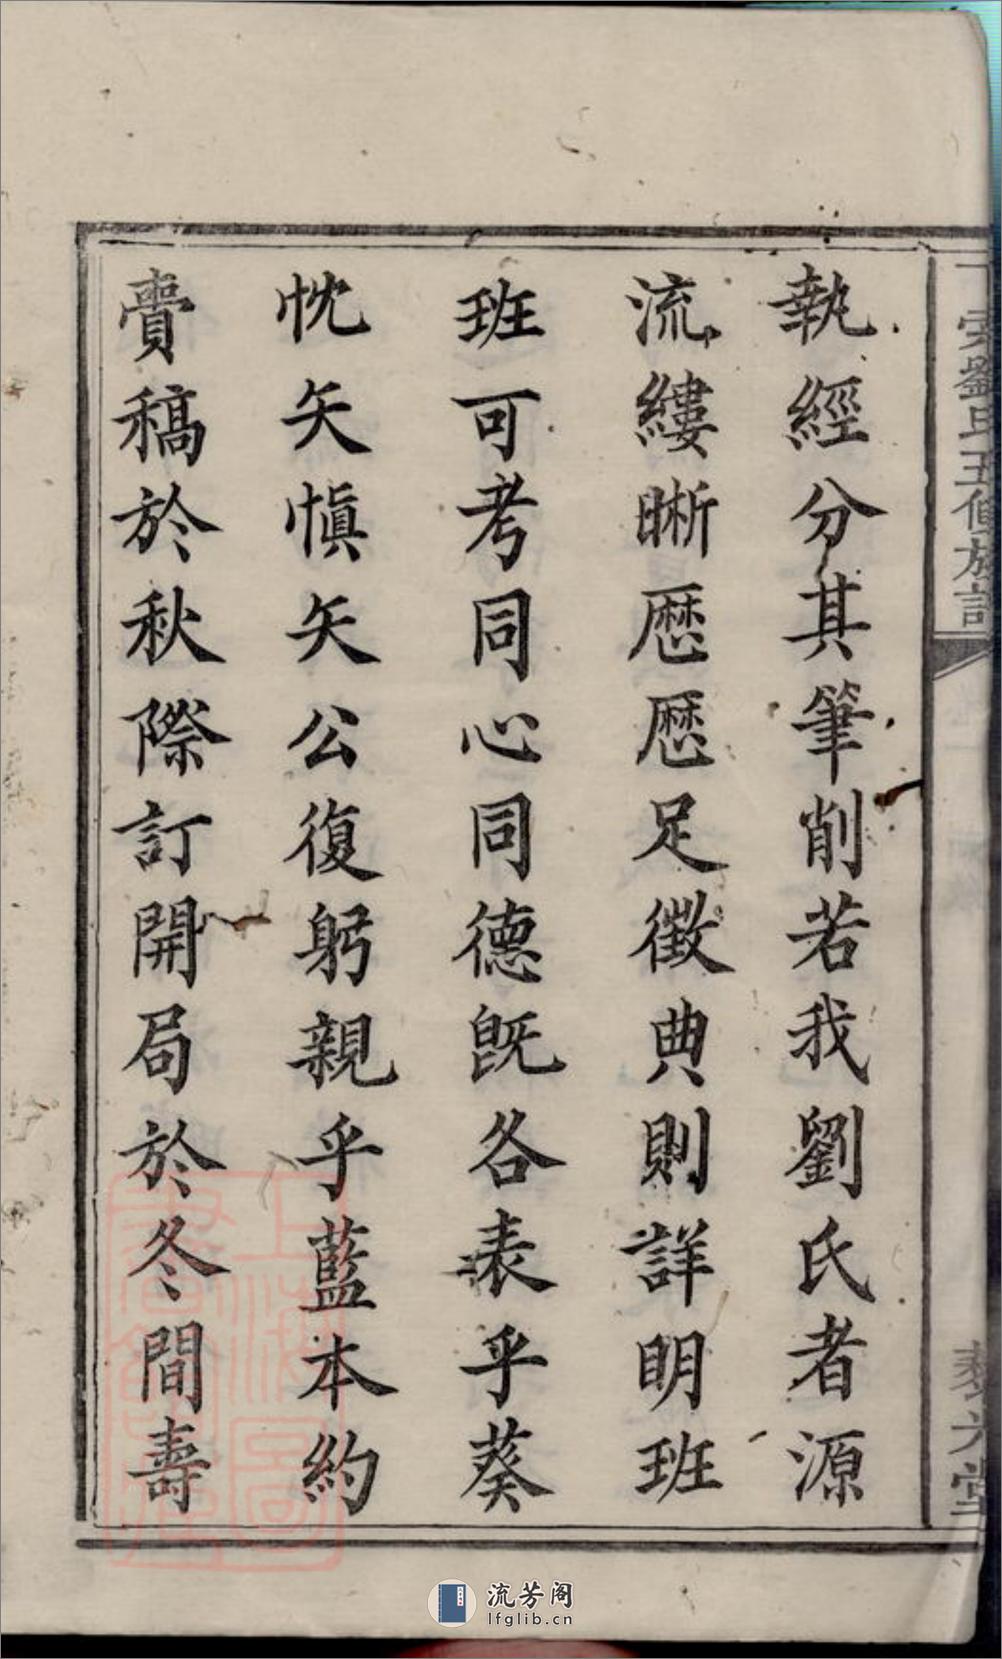 執經分其筆削若我劉氏者源
流縷晣歷歷足徵典則詳明班
班可考同心同德旣各表乎葵
忱矢愼矢公復躬親乎藍本約
賷稿於秋際訂開局於冬間壽
劉氏五修族
六堂
上海圖書館藏
流芳阁
lfglib.cn